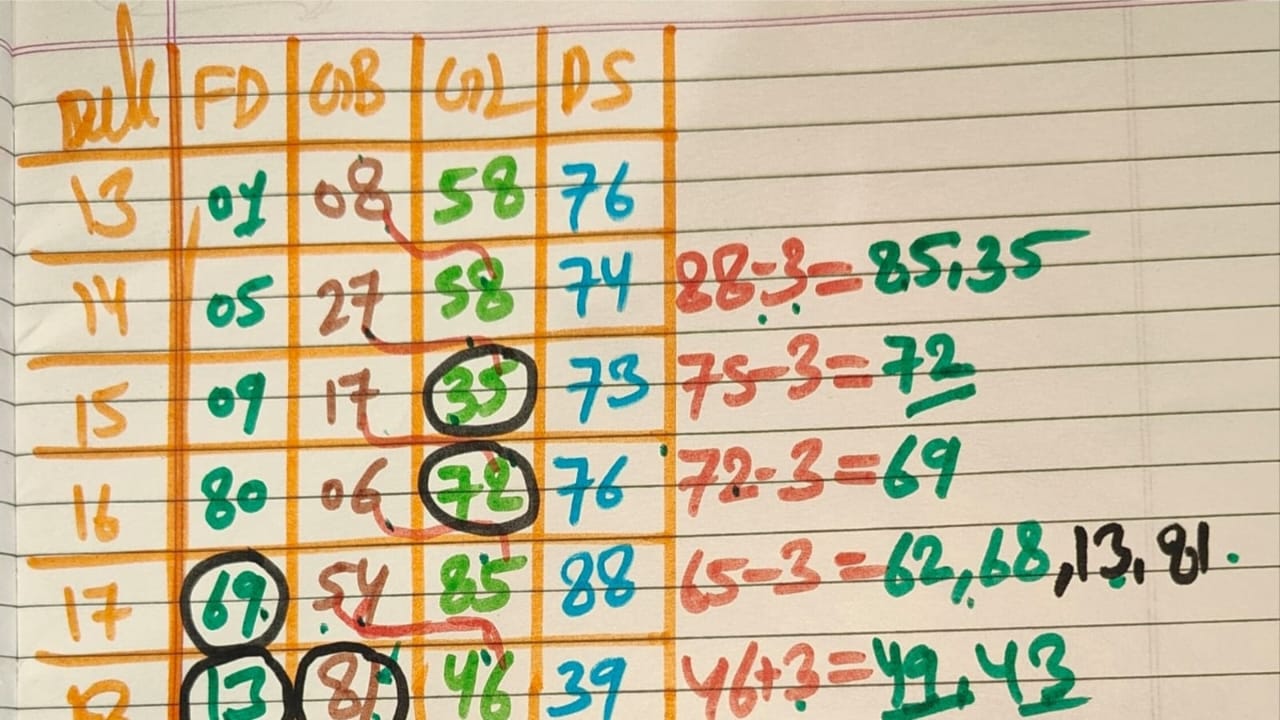 FD GB GL DS
13 04 08 58 76
14 05 27 58 74 88-3=85,35
15 09 17 35 73 75-3=72
16 80 06 72 76 72-3=69
17 69 54 85 88 65-3=62,68,13,81.
13 81 46 39 46+3=49,43